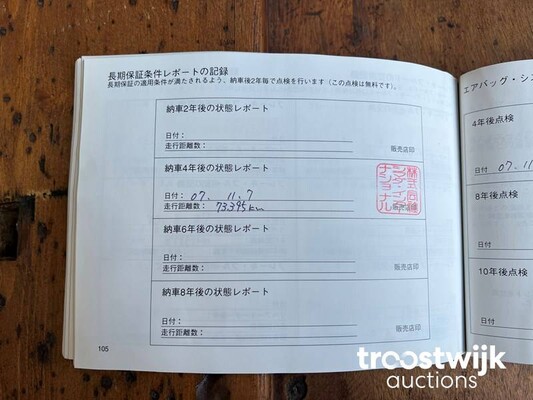 長期保証条件レポートの記録
長期保証の適用条件が満たされるよう、納車後2年毎で点検を行います（この点検は無料です）。
納車2年後の状態レポート
日付：
走行距離数：
販売店印
納車4年後の状態レポート
日付： 07. 11. 7
走行距離数： 73.395km
販売店印
株式会社
ナショナル
納車6年後の状態レポート
日付：
走行距離数：
販売店印
納車8年後の状態レポート
日付：
走行距離数：
販売店印
105
エアバッグ・シス
4年後点検
日付 07. 11.
8年後点検
日付
10年後点検
日付
troostwijk
auctions